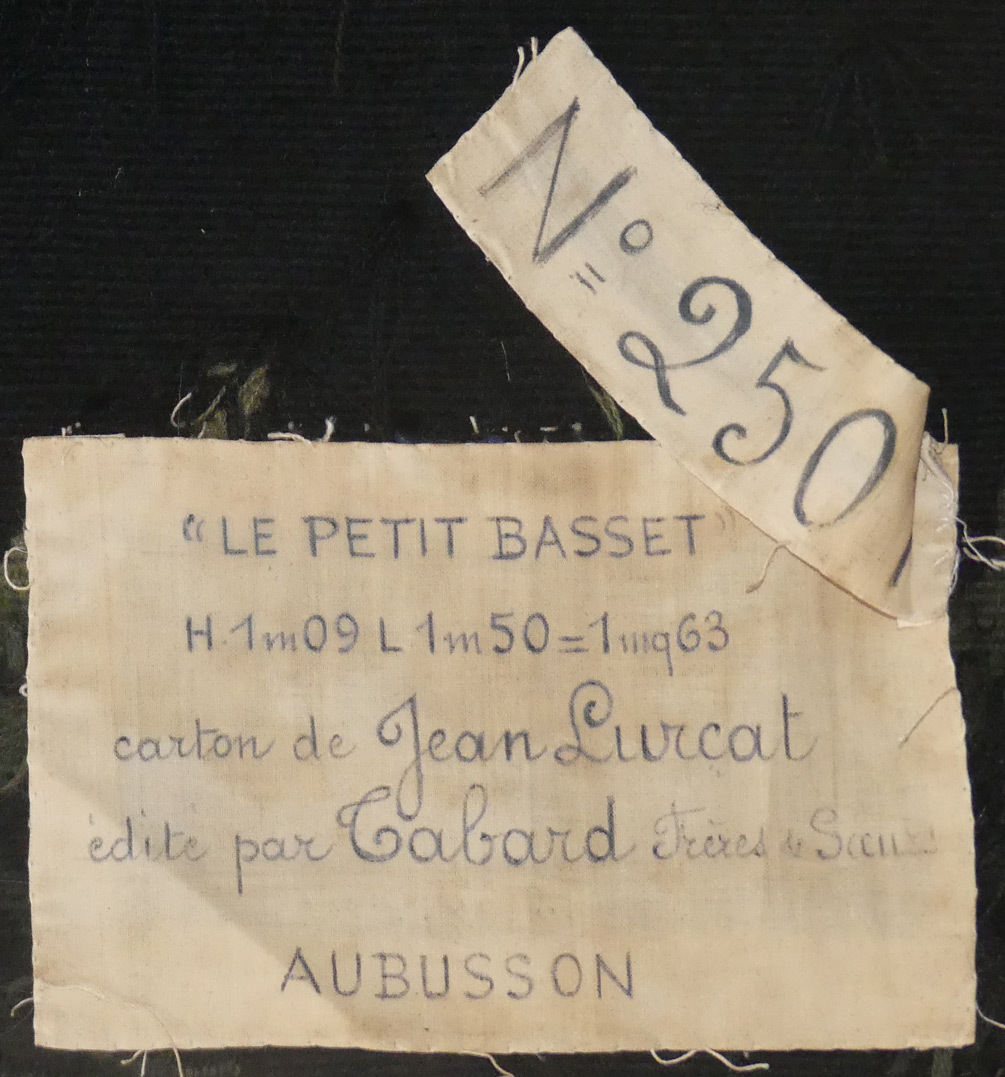 N° 250
"LE PETIT BASSET"
H.1m09 L 1m50=1mq63
carton de Jean Lurcat
édité par Tabard Frères & Soeurs
AUBUSSON